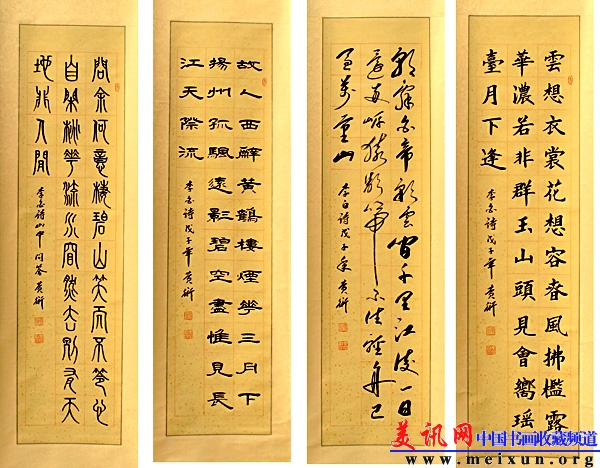 雲想衣裳花想容春風拂檻露
華濃若非群玉山頭見會嚮瑶
臺月下逢
李白诗戊子年
朝辭白帝彩雲間千里江陵一日
還兩岸猿聲啼不住輕舟已
過萬重山
李白诗戊子年
故人西辭黄鶴樓煙華三月下
揚州孤颿遠影碧空盡惟見長
江天際流
李白诗戊子年
問余何意棲碧山笑而不答心
自閑桃華流水窅然去別有天
地非人間
李白诗山中问答
美讯网 中国书画收藏频道
www.meixun.org